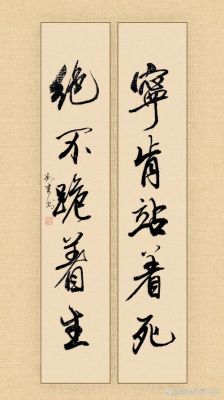 寧肯站着死
绝不跪着生